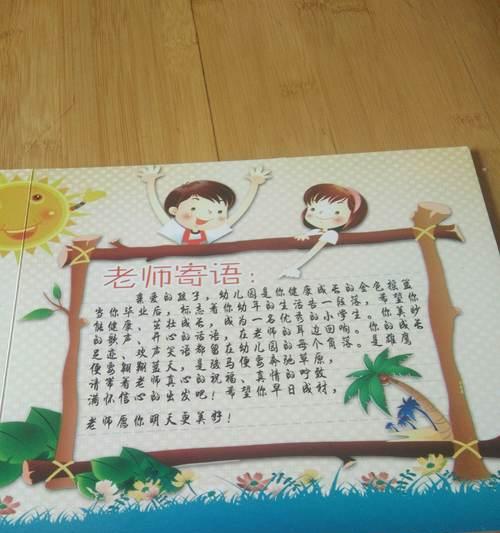 老师寄语：
亲爱的孩子，幼儿园是你健康成长的金色摇篮
当你毕业后，标志着你幼年的生活告一段落，希望你
能健康、茁壮成长，成为一名优秀的小学生。你美妙
的歌声、开心的话语，在老师的耳边回响。你的成长
足迹、欢声笑语都留在幼儿园的每个角落。是雄鹰
便要翱翔蓝天，是骏马便要奔驰草原，
请带着老师真心的祝福、真情的叮咛
满怀信心的出发吧！希望你早日成材，
老师愿你明天更美好！